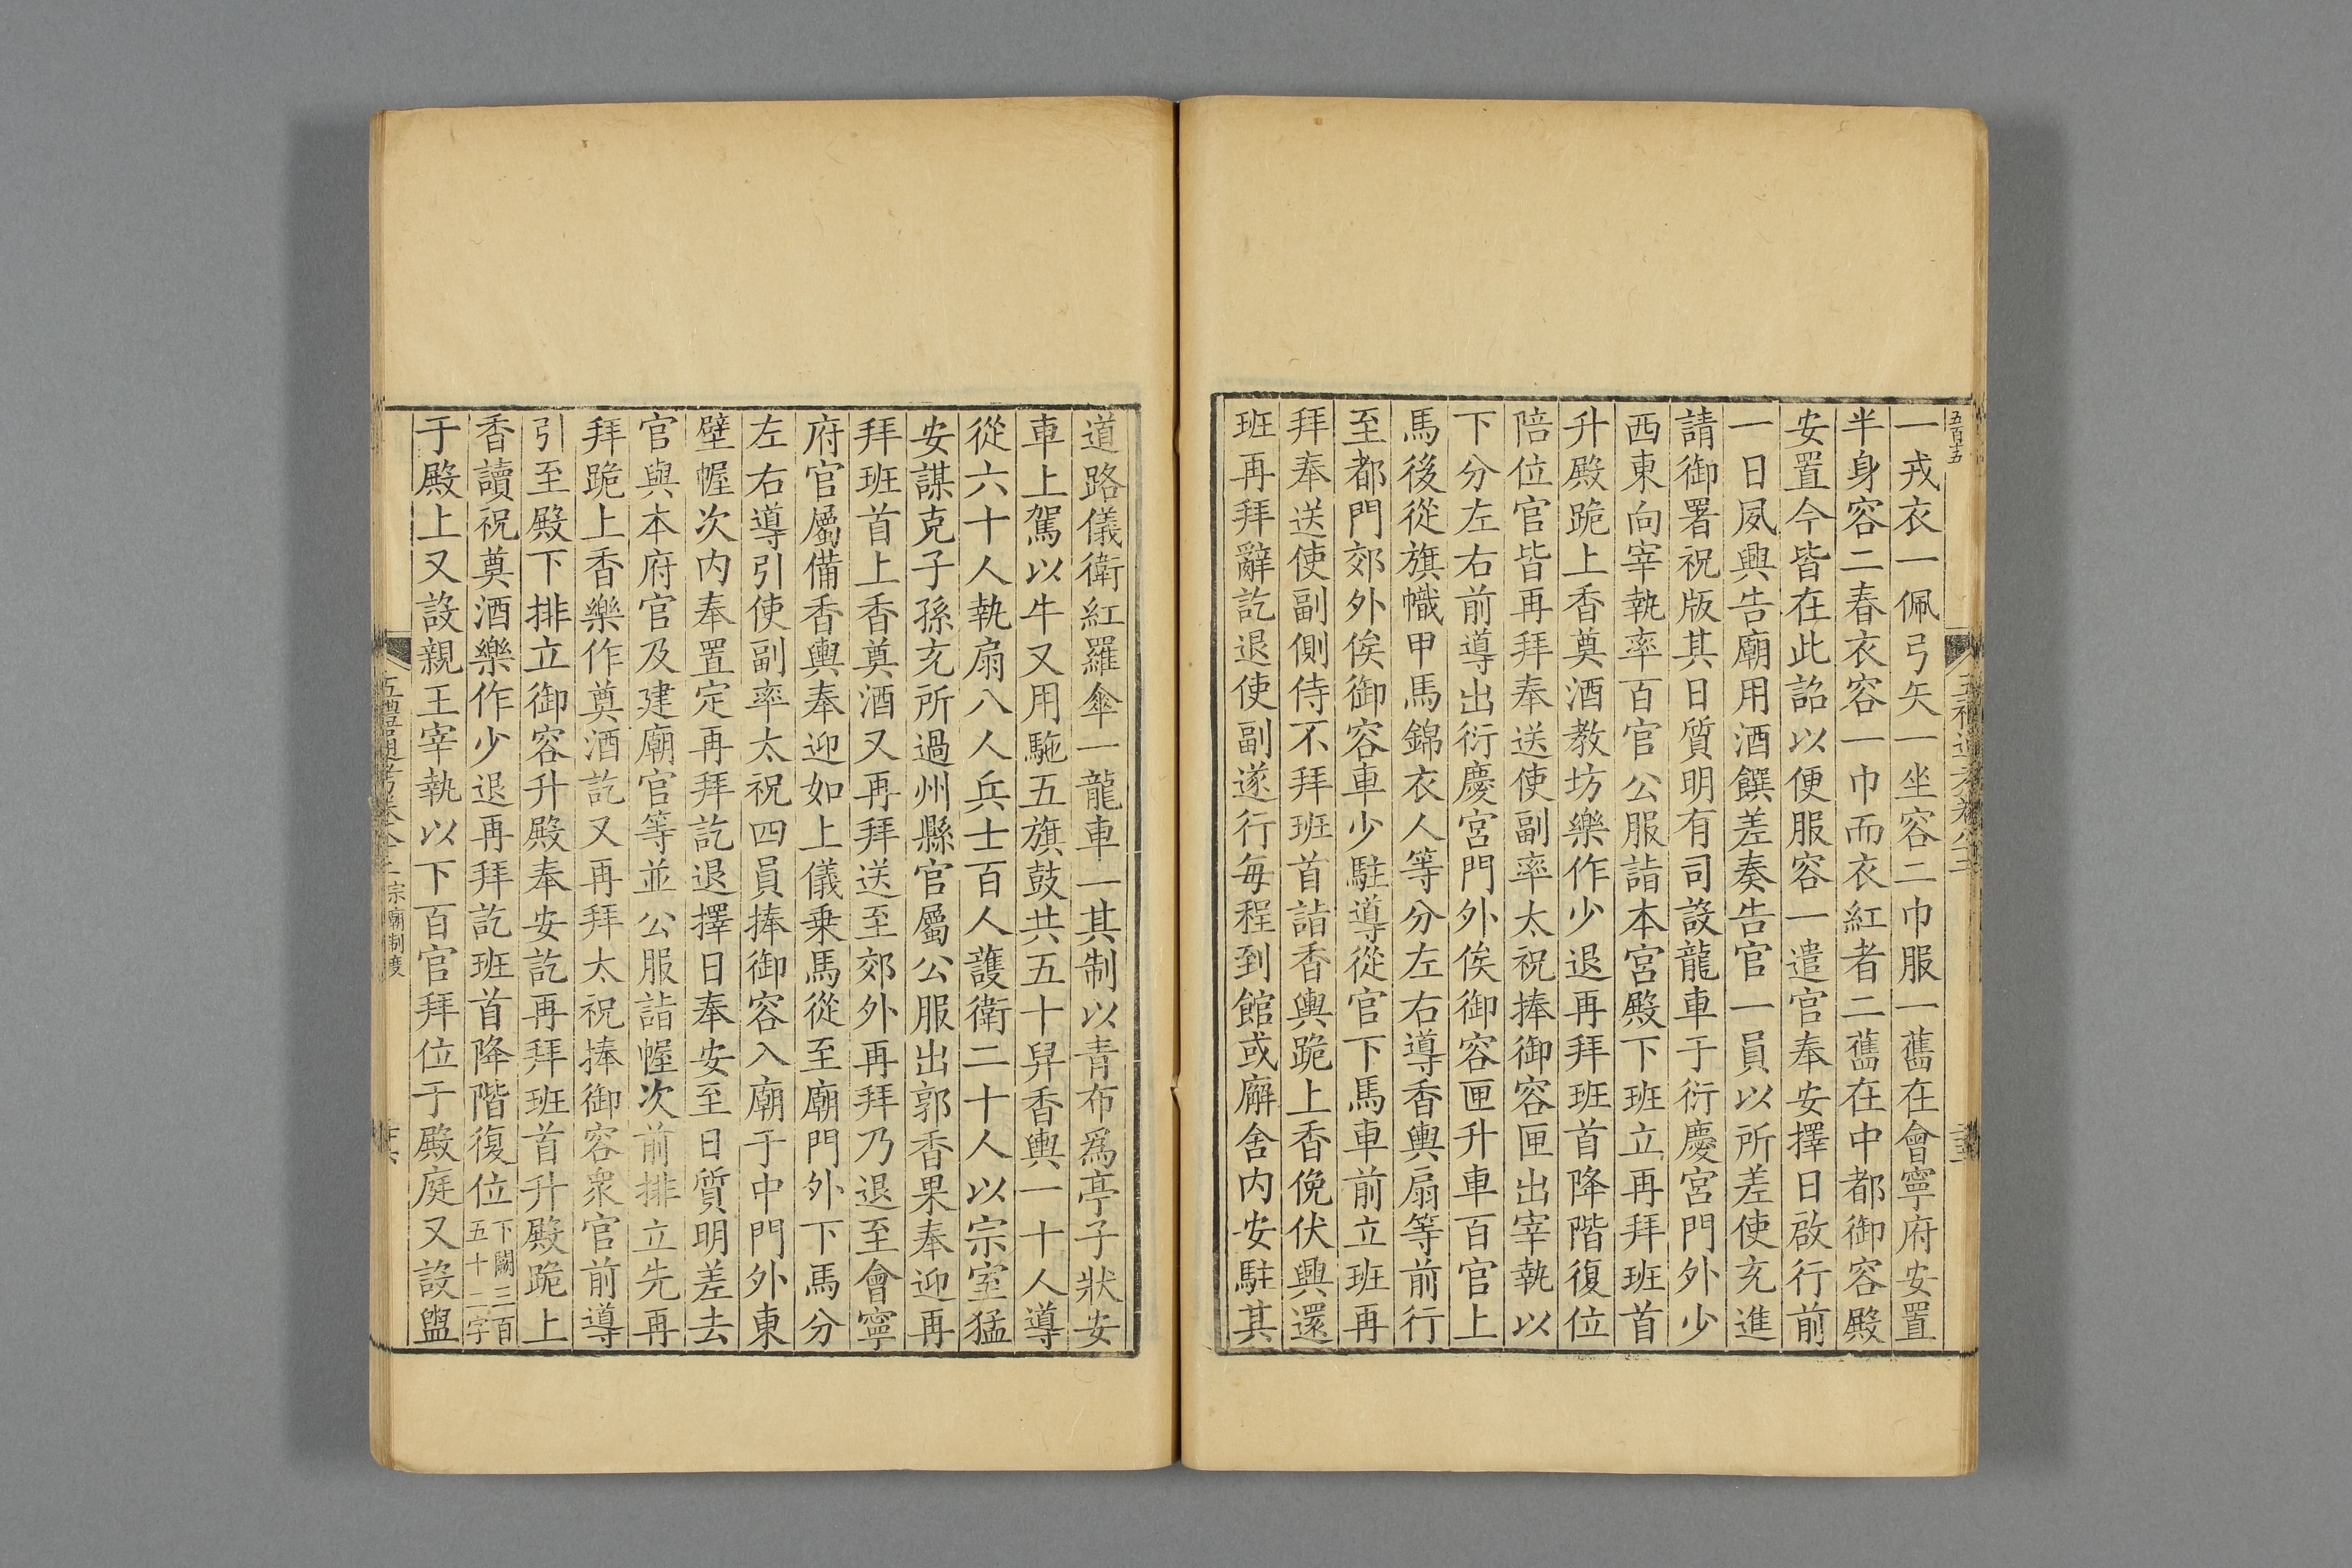 五百十五
一戎衣一佩弓矢一坐容二巾服一舊在會寧府安置
半身容二春衣容一巾而衣紅者二舊在中都御容殿
安置今皆在此詔以便服容一遣官奉安擇日啟行前
一日夙興告廟用酒饌差奏告官一員以所差使充進
請御署祝版其日質明有司設龍車于衍慶宮門外少
西東向宰執率百官公服詣本宮殿下班立再拜班首
升殿跪上香奠酒教坊樂作少退再拜班首降階復位
陪位官皆再拜奉送使副率太祝捧御容匣出宰執以
下分左右前導出衍慶宮門外俟御容匣升車百官上
馬後從旗幟甲馬錦衣人等分左右導香輿扇等前行
至都門郊外俟御容車少駐導從官下馬車前立班再
拜奉送使副側侍不拜班首詣香輿跪上香俛伏興還
班再拜辭訖退使副遂行每程到館或廨舍内安駐其
道路儀衛紅羅傘一龍車一其制以青布爲亭子狀安
車上駕以牛又用駞五旗鼓共五十舁香輿一十人導
從六十人執扇八人兵士百人護衛二十人以宗室猛
安謀克子孫充所過州縣官屬公服出郭香果奉迎再
拜班首上香奠酒又再拜送至郊外再拜乃退至會寧
府官屬備香輿奉迎如上儀乗馬從至廟門外下馬分
左右導引使副率太祝四員捧御容入廟于中門外東
壁幄次内奉置定再拜訖退擇日奉安至日質明差去
官與本府官及建廟官等並公服詣幄次前排立先再
拜跪上香樂作奠酒訖又再拜太祝捧御容衆官前導
引至殿下排立御容升殿奉安訖再拜班首升殿跪上
香讀祝奠酒樂作少退再拜訖班首降階復位下闕三百五十二字
于殿上又設親王宰執以下百官拜位于殿庭又設盥
五禮通考卷 宗廟制度